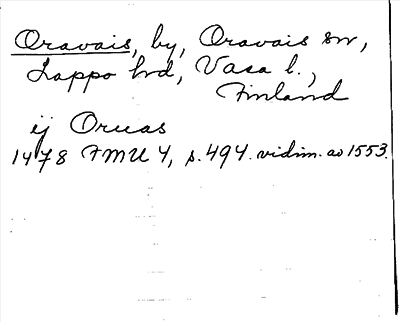 Oravais, by, Oravais sn,
Lappo hd, Vasa l.,
Finland
ij Oruas
1478 FMU 4, s. 494. vidim. av 1553.